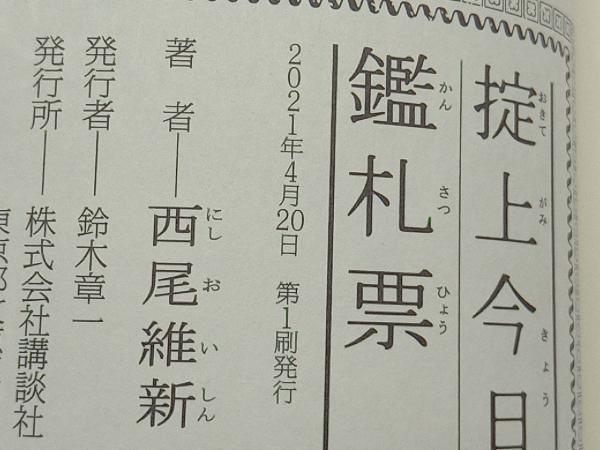 掟上今日
おきてがみきょう
鑑札票
かんさつひょう
2021年4月20日 第1刷発行
著者——西尾維新
にしおいしん
発行者——鈴木章一
発行所——株式会社講談社
東京都